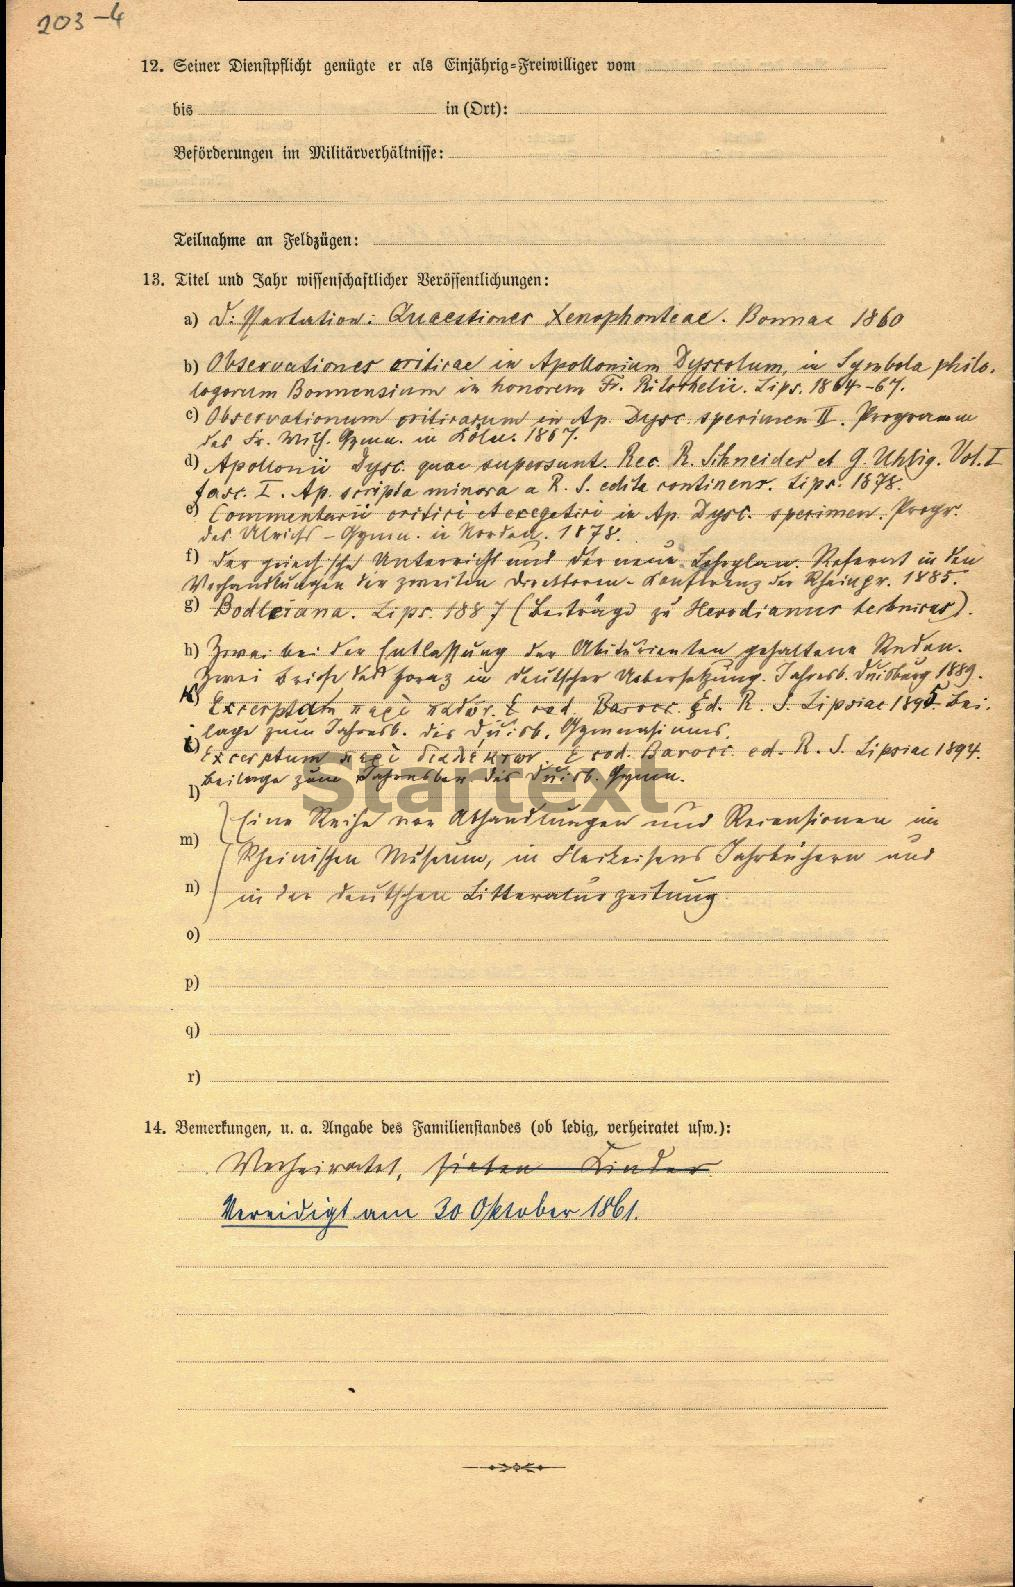 203-4
12. Seiner Dienstpflicht genügte er als Einjährig-Freiwilliger vom
bis in (Ort):
Beförderungen im Militärverhältnisse:
Teilnahme an Feldzügen:
13. Titel und Jahr wissenschaftlicher Veröffentlichungen:
a) Dissertation: Quaestiones Xenophonteae. Bonnae 1860
b) Observationes criticae in Apollonium Dyscolum, in Symbola philo-
logorum Bonnensium in honorem Fr. Ritschelii. Lips. 1864-67.
c) Observationum criticarum in Ap. Dysc. specimen II. Programm
des Fr. Wilh. Gymn. in Köln. 1867.
d) Apollonii Dysc. quae supersunt. Rec. R. Schneider et G. Uhlig. Vol. I
fasc. I. Ap. scripta minora a R. S. edita continens. Lips. 1878.
e) Commentarii critici et exegetici in Ap. Dysc. specimen. Progr.
des Ulrichs-Gymn. in Norden. 1878.
f) Der griechische Unterricht und der neue Lehrplan. Referat in den
Verhandlungen der zweiten Direktoren-Konferenz der Rheinpr. 1885.
g) Bodleiana. Lips. 1887 (Beiträge zu Herodianus technicus).
h) Zwei bei der Entlassung der Abiturienten gehaltene Reden.
Zwei Briefe des Horaz in deutscher Uebersetzung. Jahresb. Duisburg 1889.
k) Excerptum περὶ παθῶν. E cod. Barocc. Ed. R. S. Lipsiae 1895. Bei-
lage zum Jahresb. des Duisb. Gymnasiums.
i) Excerptum περὶ διαλέκτων. E cod. Barocc. ed. R. S. Lipsiae 1894.
Beilage zum Jahresber. des Duisb. Gymn.
Startext
l)
Eine Reihe von Abhandlungen und Recensionen im
m)
Rheinischen Museum, in Fleckeisens Jahrbüchern und
n) in der deutschen Litteraturzeitung.
o)
p)
q)
r)
14. Bemerkungen, u. a. Angabe des Familienstandes (ob ledig, verheiratet usw.):
Verheiratet, sieben Kinder.
Vereidigt am 30 Oktober 1861.